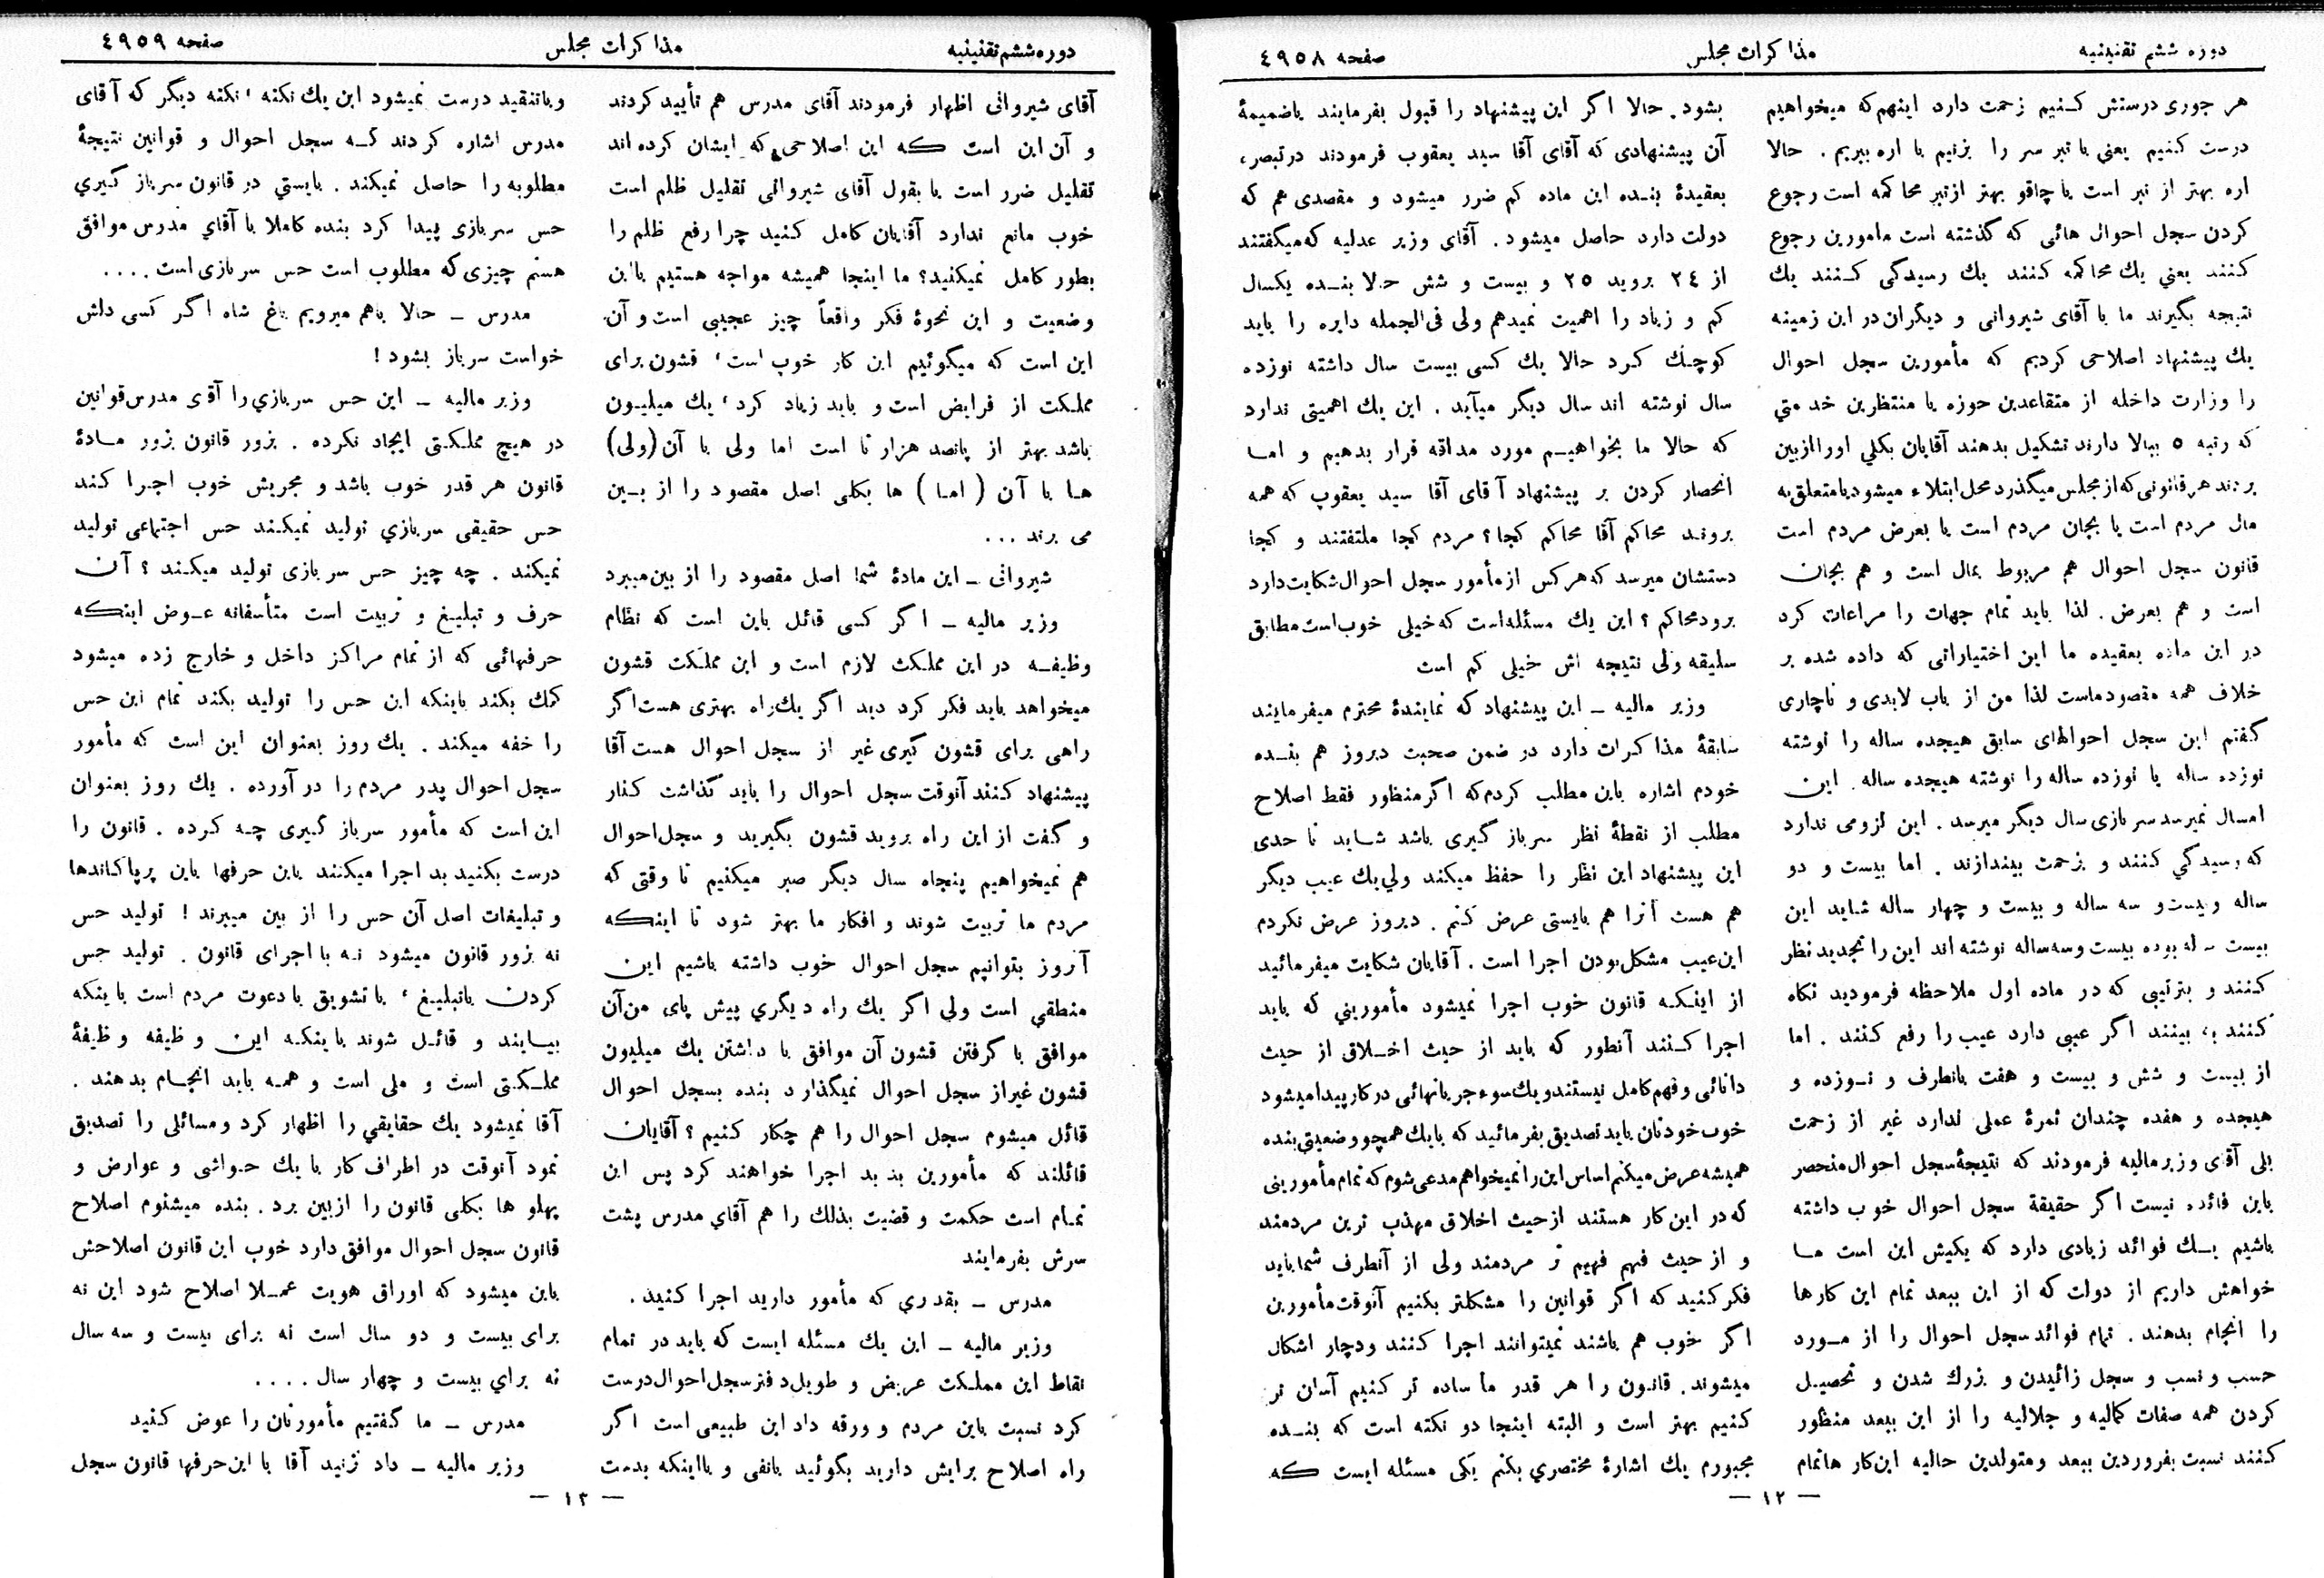 دوره ششم تقنینیه
مذاکرات مجلس
صفحه ٤٩٥٨
هر جوری درستش کنیم زحمت دارد اینهم که میخواهیم
درست کنیم یعنی با تبر سر را بزنیم یا اره ببریم . حالا
اره بهتر از تبر است یا چاقو بهتر از تبر محاکمه است رجوع
کردن سجل احوال هائی که گذشته است مامورین رجوع
کنند یعنی یك محاکمه کنند یك رسیدگی کنند یك
نتیجه بگیرند ما با آقای شیروانی و دیگران در این زمینه
یك پیشنهاد اصلاحی کردیم که مأمورین سجل احوال
را وزارت داخله از متقاعدین حوزه یا منتظرین خدمتی
که رتبه ٥ ببالا دارند تشکیل بدهند آقایان بکلی او را ازبین
بردند هر قانونی که از مجلس میگذرد محل ابتلاء میشود یا متعلق به
مال مردم است یا بجان مردم است یا بعرض مردم است
قانون سجل احوال هم مربوط بمال است و هم بجان
است و هم بعرض . لذا باید تمام جهات را مراعات کرد
در این ماده بعقیده ما این اختیاراتی که داده شده بر
خلاف همه مقصود ماست لذا من از باب لابدی و ناچاری
گفتم این سجل احوالهای سابق هیجده ساله را نوشته
نوزده ساله یا نوزده ساله را نوشته هیجده ساله . این
امسال نمیرسد سربازی سال دیگر میرسد . این لزومی ندارد
که رسیدگی کنند و بزحمت بیندازند . اما بیست و دو
ساله و بیست و سه ساله و بیست و چهار ساله شاید این
بیست ساله بوده بیست و سه ساله نوشته اند این را تجدید نظر
کنند و بترتیبی که در ماده اول ملاحظه فرمودید نگاه
کنند به بینند اگر عیبی دارد عیب را رفع کنند . اما
از بیست و شش و بیست و هفت بانطرف و نوزده و
هیجده و هفده چندان ثمرهٔ عملی ندارد غیر از زحمت
بلی آقای وزیر مالیه فرمودند که نتیجهٔ سجل احوال منحصر
باین فائده نیست اگر حقیقة سجل احوال خوب داشته
باشیم یك فوائد زیادی دارد که یکیش این است ما
خواهش داریم از دولت که از این ببعد تمام این کارها
را انجام بدهند . تمام فوائد سجل احوال را از مورد
حسب و نسب و سجل زائیدن و بزرك شدن و تحصیل
کردن همه صفات کمالیه و جلالیه را از این ببعد منظور
کنند نسبت بفروردین ببعد و متولدین حالیه این کار ها تمام
بشود . حالا اگر این پیشنهاد را قبول بفرمایند با ضمیمهٔ
آن پیشنهادی که آقای آقا سید یعقوب فرمودند در تبصره
بعقیدهٔ بنده این ماده کم ضرر میشود و مقصدی هم که
دولت دارد حاصل میشود . آقای وزیر عدلیه که میگفتند
از ٢٤ بروید ٢٥ و بیست و شش حالا بنده یکسال
کم و زیاد را اهمیت نمیدهم ولی فی الجمله دایره را باید
کوچك کرد حالا یك کسی بیست سال داشته نوزده
سال نوشته اند سال دیگر میآید . این یك اهمیتی ندارد
که حالا ما بخواهیم مورد مداقه قرار بدهیم و اما
انحصار کردن بر پیشنهاد آقای آقا سید یعقوب که همه
بروند محاکم آقا محاکم کجا ؟ مردم کجا ملتفتند و کجا
دستشان میرسد که هر کس از مأمور سجل احوال شکایت دارد
برود محاکم ؟ این یك مسئله است که خیلی خوب است مطابق
سلیقه ولی نتیجه اش خیلی کم است
وزیر مالیه ـ این پیشنهاد که نمایندهٔ محترم میفرمایند
سابقهٔ مذاکرات دارد در ضمن صحبت دیروز هم بنده
خودم اشاره باین مطلب کردم که اگر منظور فقط اصلاح
مطلب از نقطهٔ نظر سرباز گیری باشد شاید تا حدی
این پیشنهاد این نظر را حفظ میکند ولی یك عیب دیگر
هم هست آنرا هم بایستی عرض کنم . دیروز عرض نکردم
این عیب مشکل بودن اجرا است . آقایان شکایت میفرمائید
از اینکه قانون خوب اجرا نمیشود مأمورینی که باید
اجرا کنند آنطور که باید از حیث اخلاق از حیث
دانائی و فهم کامل نیستند و یك سوء جریانهائی در کار پیدا میشود
خوب خودتان باید تصدیق بفرمائید که با یك همچو وضعیتی بنده
همیشه عرض میکنم اساس این را نمیخواهم مدعی شوم که تمام مأمورینی
که در این کار هستند از حیث اخلاق مهذب ترین مردمند
و از حیث فهم فهیم تر مردمند ولی از آنطرف شما باید
فکر کنید که اگر قوانین را مشکلتر بکنیم آنوقت مأمورین
اگر خوب هم باشند نمیتوانند اجرا کنند و دچار اشکال
میشوند . قانون را هر قدر ما ساده تر کنیم آسان تر
کنیم بهتر است و البته اینجا دو نکته است که بنده
مجبورم یك اشارهٔ مختصری بکنم یکی مسئله ایست که
— ١٢ —
دوره ششم تقنینیه
مذاکرات مجلس
صفحه ٤٩٥٩
آقای شیروانی اظهار فرمودند آقای مدرس هم تأیید کردند
و آن این است که این اصلاحی که ایشان کرده اند
تقلیل ضرر است یا بقول آقای شیروانی تقلیل ظلم است
خوب مانع ندارد آقایان کامل کنید چرا رفع ظلم را
بطور کامل نمیکنید ؟ ما اینجا همیشه مواجه هستیم با این
وضعیت و این نحوهٔ فکر واقعاً چیز عجیبی است و آن
این است که میگوئیم این کار خوب است ، قشون برای
مملکت از فرایض است و باید زیاد کرد ، یك میلیون
باشد بهتر از پانصد هزار تا است اما ولی با آن (ولی)
ها با آن ( اما ) ها بکلی اصل مقصود را از بین
می برند ...
شیروانی ـ این مادهٔ شما اصل مقصود را از بین میبرد
وزیر مالیه ـ اگر کسی قائل باین است که نظام
وظیفه در این مملکت لازم است و این مملکت قشون
میخواهد باید فکر کرد دید اگر یك راه بهتری هست اگر
راهی برای قشون گیری غیر از سجل احوال هست آقا
پیشنهاد کنند آنوقت سجل احوال را باید گذاشت کنار
و گفت از این راه بروید قشون بگیرید و سجل احوال
هم نمیخواهیم پنجاه سال دیگر صبر میکنیم تا وقتی که
مردم ما تربیت شوند و افکار ما بهتر شود تا اینکه
آنروز بتوانیم سجل احوال خوب داشته باشیم این
منطقی است ولی اگر یك راه دیگری پیش پای من آن
موافق با گرفتن قشون آن موافق با داشتن یك میلیون
قشون غیر از سجل احوال نمیگذارد بنده بسجل احوال
قائل میشوم سجل احوال را هم چکار کنیم ؟ آقایان
قائلند که مأمورین بد بد اجرا خواهند کرد پس این
تمام است حکمت و قضیت بذلك را هم آقای مدرس پشت
سرش بفرمایند
مدرس ـ بقدری که مأمور دارید اجرا کنید .
وزیر مالیه ـ این یك مسئله ایست که باید در تمام
نقاط این مملکت عریض و طویل دفتر سجل احوال درست
کرد نسبت باین مردم و ورقه داد این طبیعی است اگر
راه اصلاح برایش دارید بگوئید بانفی و بااینکه بدست
وباتنقید درست نمیشود این یك نکته ، نکته دیگر که آقای
مدرس اشاره کردند که سجل احوال و قوانین نتیجهٔ
مطلوبه را حاصل نمیکند . بایستی در قانون سرباز گیری
حس سربازی پیدا کرد بنده کاملا با آقای مدرس موافق
هستم چیزی که مطلوب است حس سربازی است ....
مدرس ـ حالا باهم میرویم باغ شاه اگر کسی دلش
خواست سرباز بشود !
وزیر مالیه ـ این حس سربازی را آقای مدرس قوانین
در هیچ مملکتی ایجاد نکرده . بزور قانون بزور مادهٔ
قانون هر قدر خوب باشد و مجریش خوب اجرا کند
حس حقیقی سربازی تولید نمیکند حس اجتماعی تولید
نمیکند . چه چیز حس سربازی تولید میکند ؟ آن
حرف و تبلیغ و تربیت است متأسفانه عوض اینکه
حرفهائی که از تمام مراکز داخل و خارج زده میشود
کمك بکند باینکه این حس را تولید بکند تمام این حس
را خفه میکند . یك روز بعنوان این است که مأمور
سجل احوال پدر مردم را در آورده . یك روز بعنوان
این است که مأمور سرباز گیری چه کرده . قانون را
درست بکنید بد اجرا میکنند باین حرفها باین پرپاکاندها
و تبلیغات اصل آن حس را از بین میبرند ! تولید حس
نه بزور قانون میشود نه با اجرای قانون . تولید حس
کردن باتبلیغ ، با تشویق با دعوت مردم است باینکه
بیایند و قائل شوند باینکه این وظیفه وظیفهٔ
مملکتی است و ملی است و همه باید انجام بدهند .
آقا نمیشود یك حقایقی را اظهار کرد و مسائلی را تصدیق
نمود آنوقت در اطراف کار با یك حواشی و عوارض و
پهلو ها بکلی قانون را ازبین برد . بنده میشنوم اصلاح
قانون سجل احوال موافق دارد خوب این قانون اصلاحش
باین میشود که اوراق هویت عملا اصلاح شود این نه
برای بیست و دو سال است نه برای بیست و سه سال
نه برای بیست و چهار سال ....
مدرس ـ ما گفتیم مأمورتان را عوض کنید
وزیر مالیه ـ داد نزنید آقا با این حرفها قانون سجل
— ١٣ —